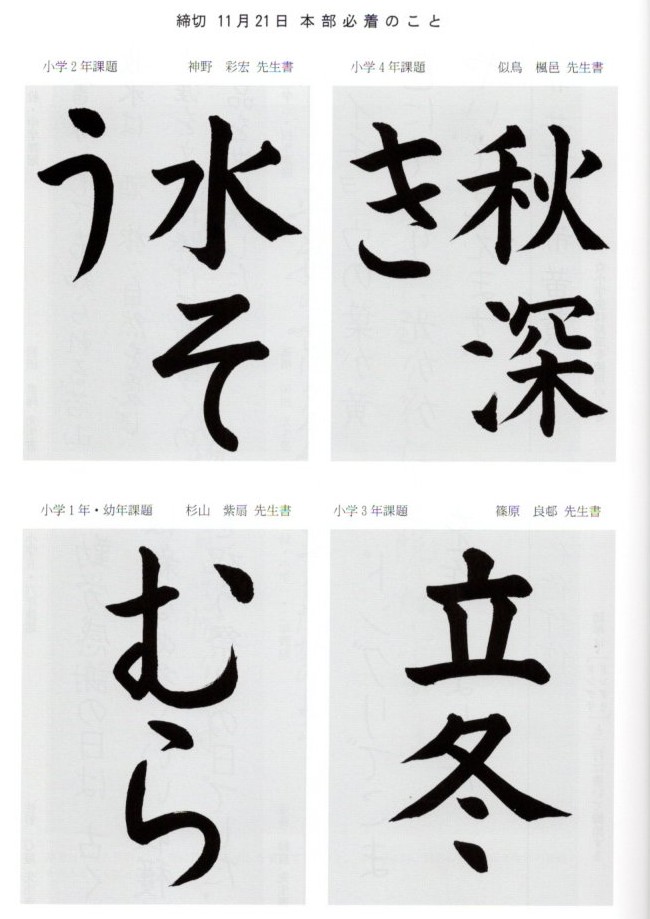 締切 11月21日 本部必着のこと
小学2年課題 神野 彩宏 先生書
水そ
う
小学4年課題 似鳥 楓邑 先生書
秋深
き
小学1年・幼年課題 杉山 紫扇 先生書
むら
小学3年課題 篠原 良邨 先生書
立冬